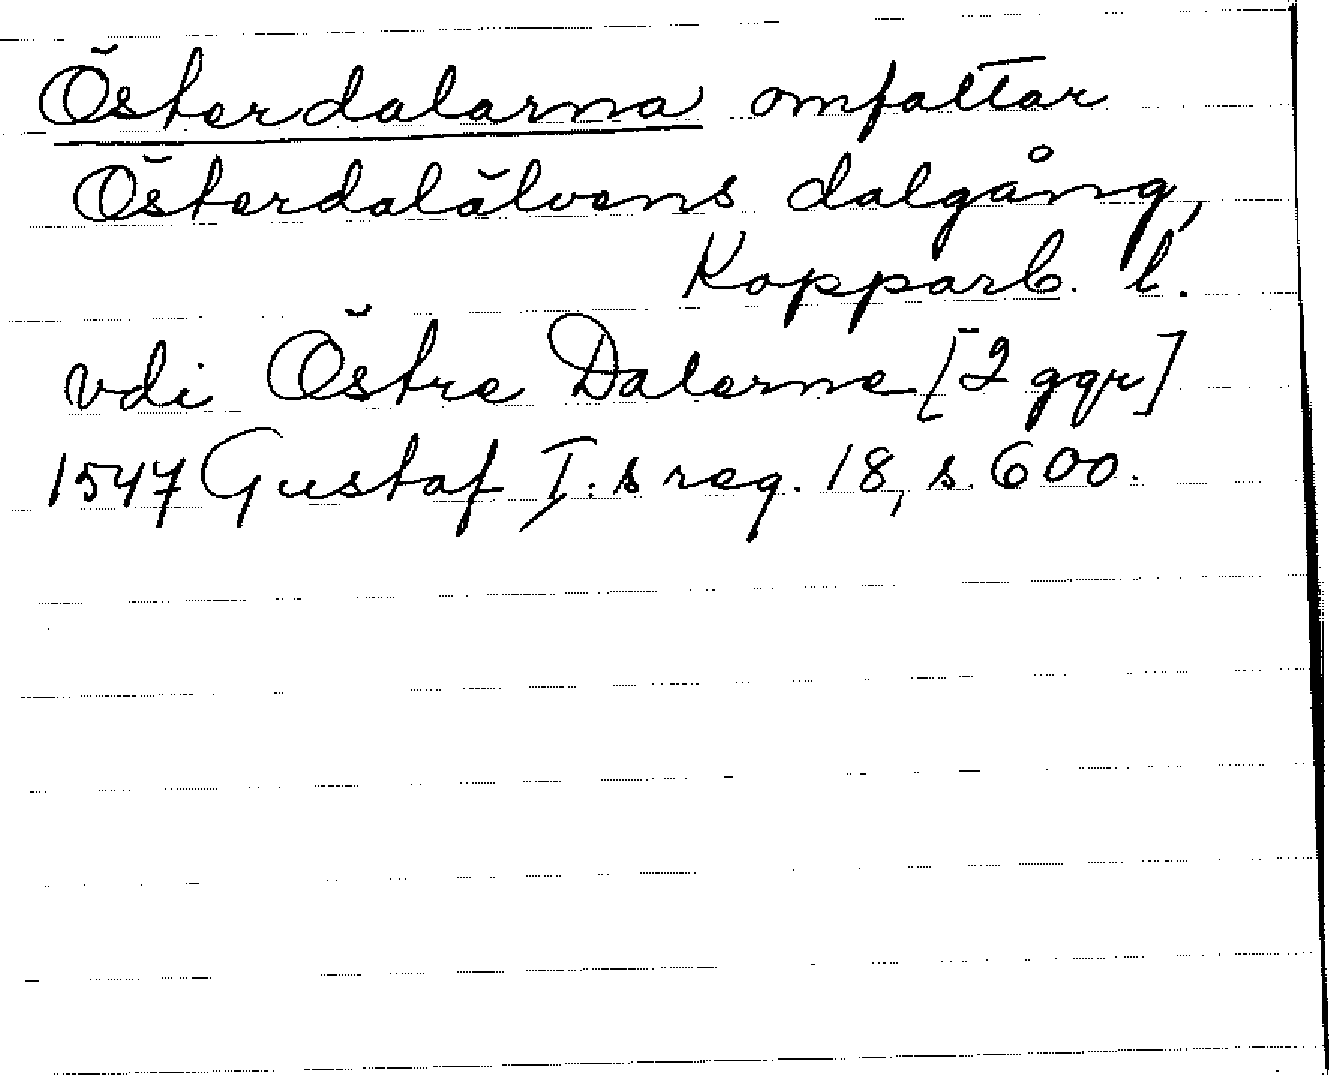 Österdalarna omfattar
Österdalälvens dalgång,
Kopparb. l.
vdi Östre Dalerne [2 ggr]
1547 Gustaf I:s reg. 18, s. 600.